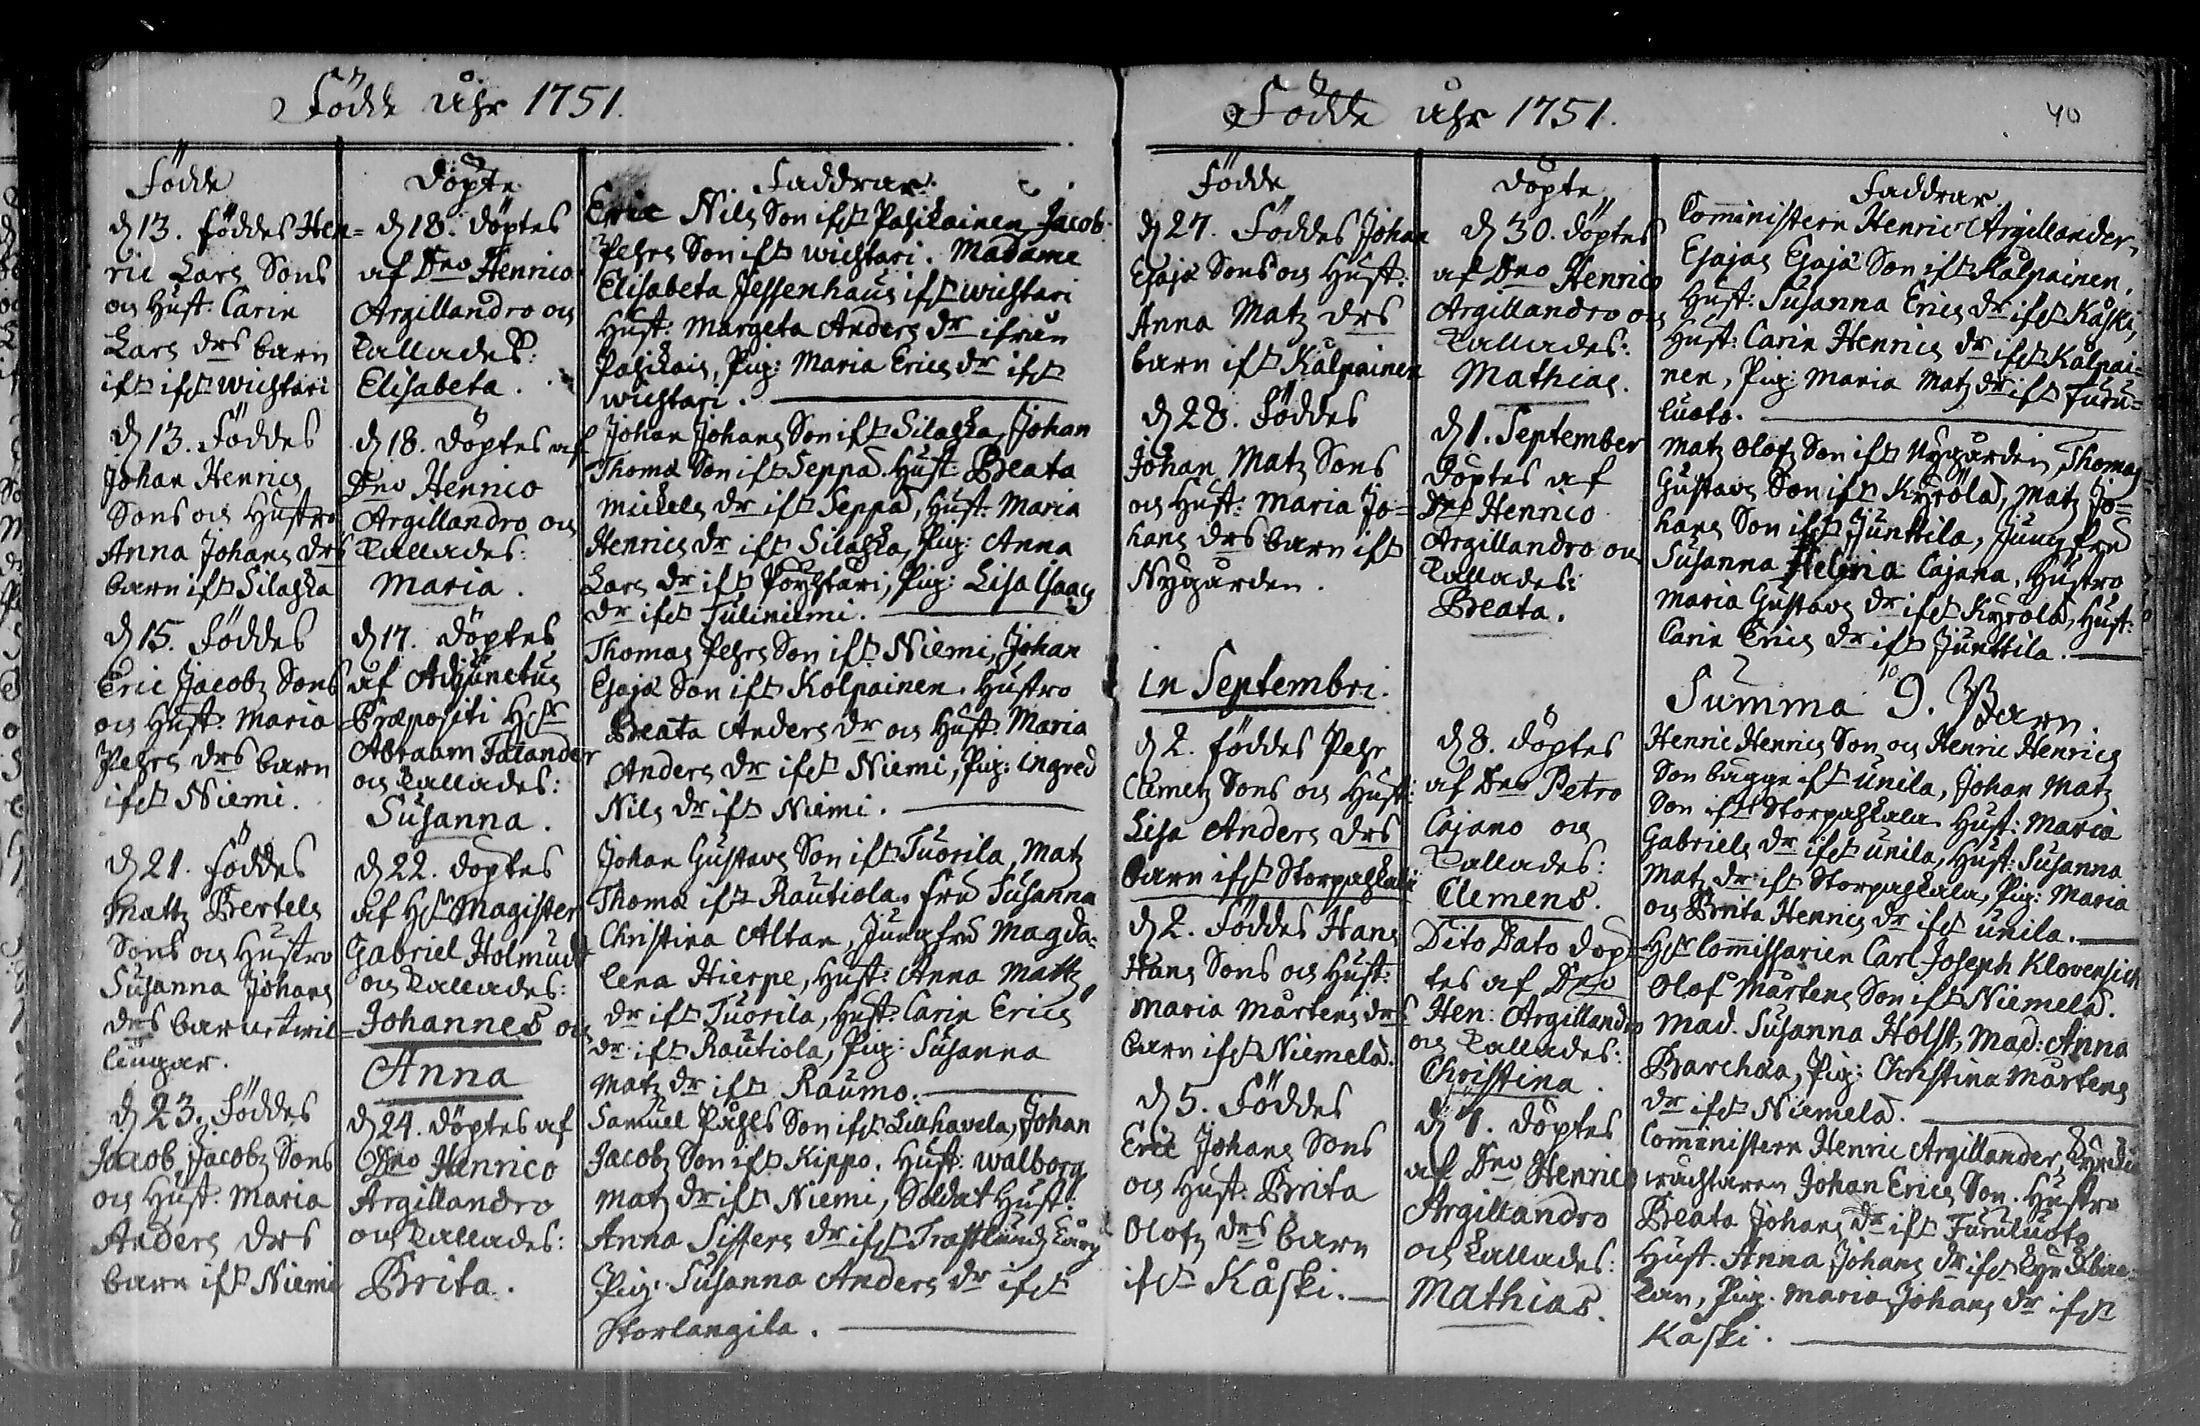 Födde åhr 1751.
Födde
d 13. föddes Hen=
ric Lars Sons
och Hust. Carin
Lars drs barn
ifr wichtari
d 13. Föddes
Johan Henrics
Sons och Hustro
Anna Johans drs
barn ifr Silaska
d 15. Föddes
Eric Jacobs Sons
och Hust: Maria
Pehrs drs barn
ifr Niemi.
d 21. föddes
Matts Bertels
Sons och Hustro
Susanna Johans
drs barn, twil=
lingar.
d 23. Föddes
Jacob Jacobs Sons
och Hust: Maria
Anders drs
barn ifr Niemi
Döpte
d 18. döptes
af Dno Henrico
Argillandro och
kallades:
Elisabeta.
d 18. döptes af
Dno Henrico
Argillandro och
kallades:
Maria.
d 17. döptes
af Adjunctus
Præpositi Hr
Abraam Falander
och kallades:
Susanna.
d 22. döptes
af Hr Magister
Gabriel Holmudd
och kallades:
Johannes och
Anna
d 24. döptes af
Dno Henrico
Argillandro
och kallades:
Brita.
Faddrar.
Eric Nils Son ifr Pasikainen, Jacob
Pehrs Son ifr wichtari. Madame
Elisabeta Jessenhaus ifr wichtari
Hust: Margeta Anders dr ifrån
Pasikais, Pig: Maria Erics dr ifr
wichtari.
Johan Johans Son ifr Silaska, Johan
Thomæ Son ifr Seppä. Hust: Beata
Mickels dr ifr Seppä, Hust: Maria
Henrics dr ifr Silaska, Pig: Anna
Lars dr ifr Pöyhtäri, Pig: Lisa Isaacs
dr ifr Tuliniemi.
Thomas Pehrs Son ifr Niemi, Johan
Esajæ Son ifr Kolpainen. Hustro
Beata Anders dr och Hust. Maria
Anders dr ifr Niemi, Pig: Ingred
Nils dr ifr Niemi.
Johan Gustavs Son ifr Tuorila, Matz
Thomæ ifr Rautiola. fru Susanna
Christina Altan, Jungfru Magda=
lena Hierpe, Hust: Anna Matts
dr ifr Tuorila, Hust: Carin Erics
dr ifr Rautiola, Pig: Susanna
Matz dr ifr Raumo.
Samuel Påhls Son ifr Lillhavela, Johan
Jacobs Son ifr Kippo. Hust: walborg
Matz dr ifr Niemi, Soldat Hust:
Anna Siffers dr ifr
Pig: Susanna Anders dr ifr
Storlangila.
Födde åhr 1751.
40
Födde
d 27. Föddes Johan
Esajæ Sons och Hust:
Anna Matz drs
barn ifr Kålpainen
d 28. Föddes
Johan Matz Sons
och Hust: Maria Jo=
hans drs barn ifr
Nygården.
in Septembri.
d 2. föddes Pehr
Clemetz Sons och Hust:
Lisa Anders drs
barn ifr Storpaskala
d 2. Föddes Hans
Hans Sons och Hust:
Maria Mårtens drs
barn ifr Niemelä.
d 5. Föddes
Eric Johans Sons
och Hust. Brita
Olofz drs barn
ifr Kåski.
Döpte
d 30. döptes
af Dno Henrico
Argillandro och
kallades:
Mathias.
d 1. September
döptes af
Dno Henrico
Argillandro och
kallades:
Beata.
d 8. döptes
af Dno Petro
Cajano och
kallades:
Clemens.
Dito Dato döp=
tes af Dno
Hen: Argillandro
och kallades:
Christina.
d 7. döptes
af Dno Henrico
Argillandro
och kallades:
Mathias.
Faddrar
Comministern Henric Argillander,
Esajas Esajæ Son ifr Kålpainen.
Hust: Susanna Erics dr ifr Kåski,
Hust: Carin Henrics dr ifr Kålpai=
nen, Pig: Maria Matz dr ifr Furu=
luoto.
Matz Olofz Son ifr Nygården, Thomas
Gustavs Son ifr Kyrölä, Matz Jo=
hans Son ifr Junttila, Jungfru
Susanna Helena Cajana, Hustro
Maria Gustavs dr ifr Kyrölä, Hust:
Carin Erics dr ifr Junttila.
10
Summa 9. Barn.
Henric Henrics Son och Henric Henrics
Son bägge ifr unila, Johan Matz
Son ifr Storpaskala. Hust: Maria
Gabriels dr ifr unila, Hust: Susanna
Matz dr ifr Storpaskala, Pig: Maria
och Brita Henrics dr ifr unila.
Hr Commissarien Carl Joseph Klovensich
Olof Mårtens Son ifr Niemelä.
Mad. Susanna Holst, Mad: Anna
Barchæa, Pig: Christina Mårtens
dr ifr Niemelä.
Comministern Henric Argillander, Kyrckio
wachtaren Johan Erics Son. Hustro
Beata Johans dr ifr Furuluoto
Hust. Anna Johans dr ifr
Pig. Maria Johans dr ifr
Kåski.